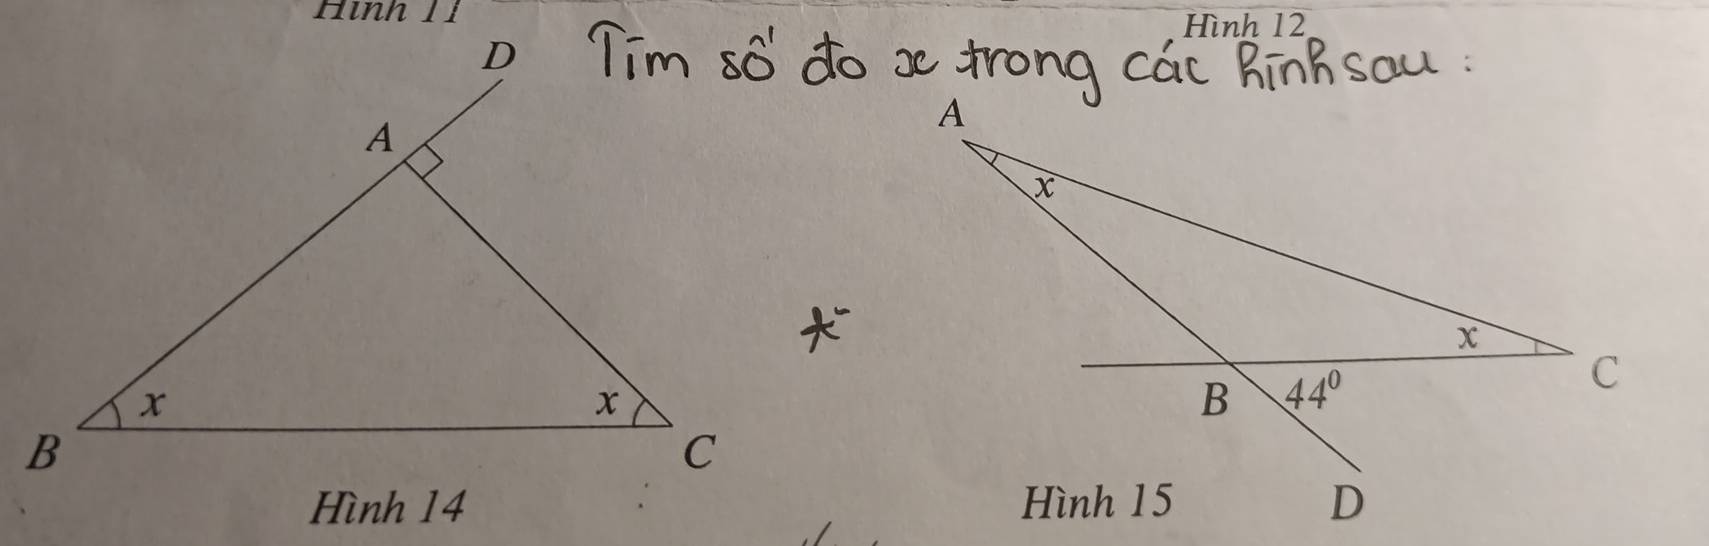 Hình 11
Hình 12
Tìm số đo x trong các hình sau :
D
A
x
x
B
C
Hình 14
A
x
x
C
B
44⁰
D
Hình 15